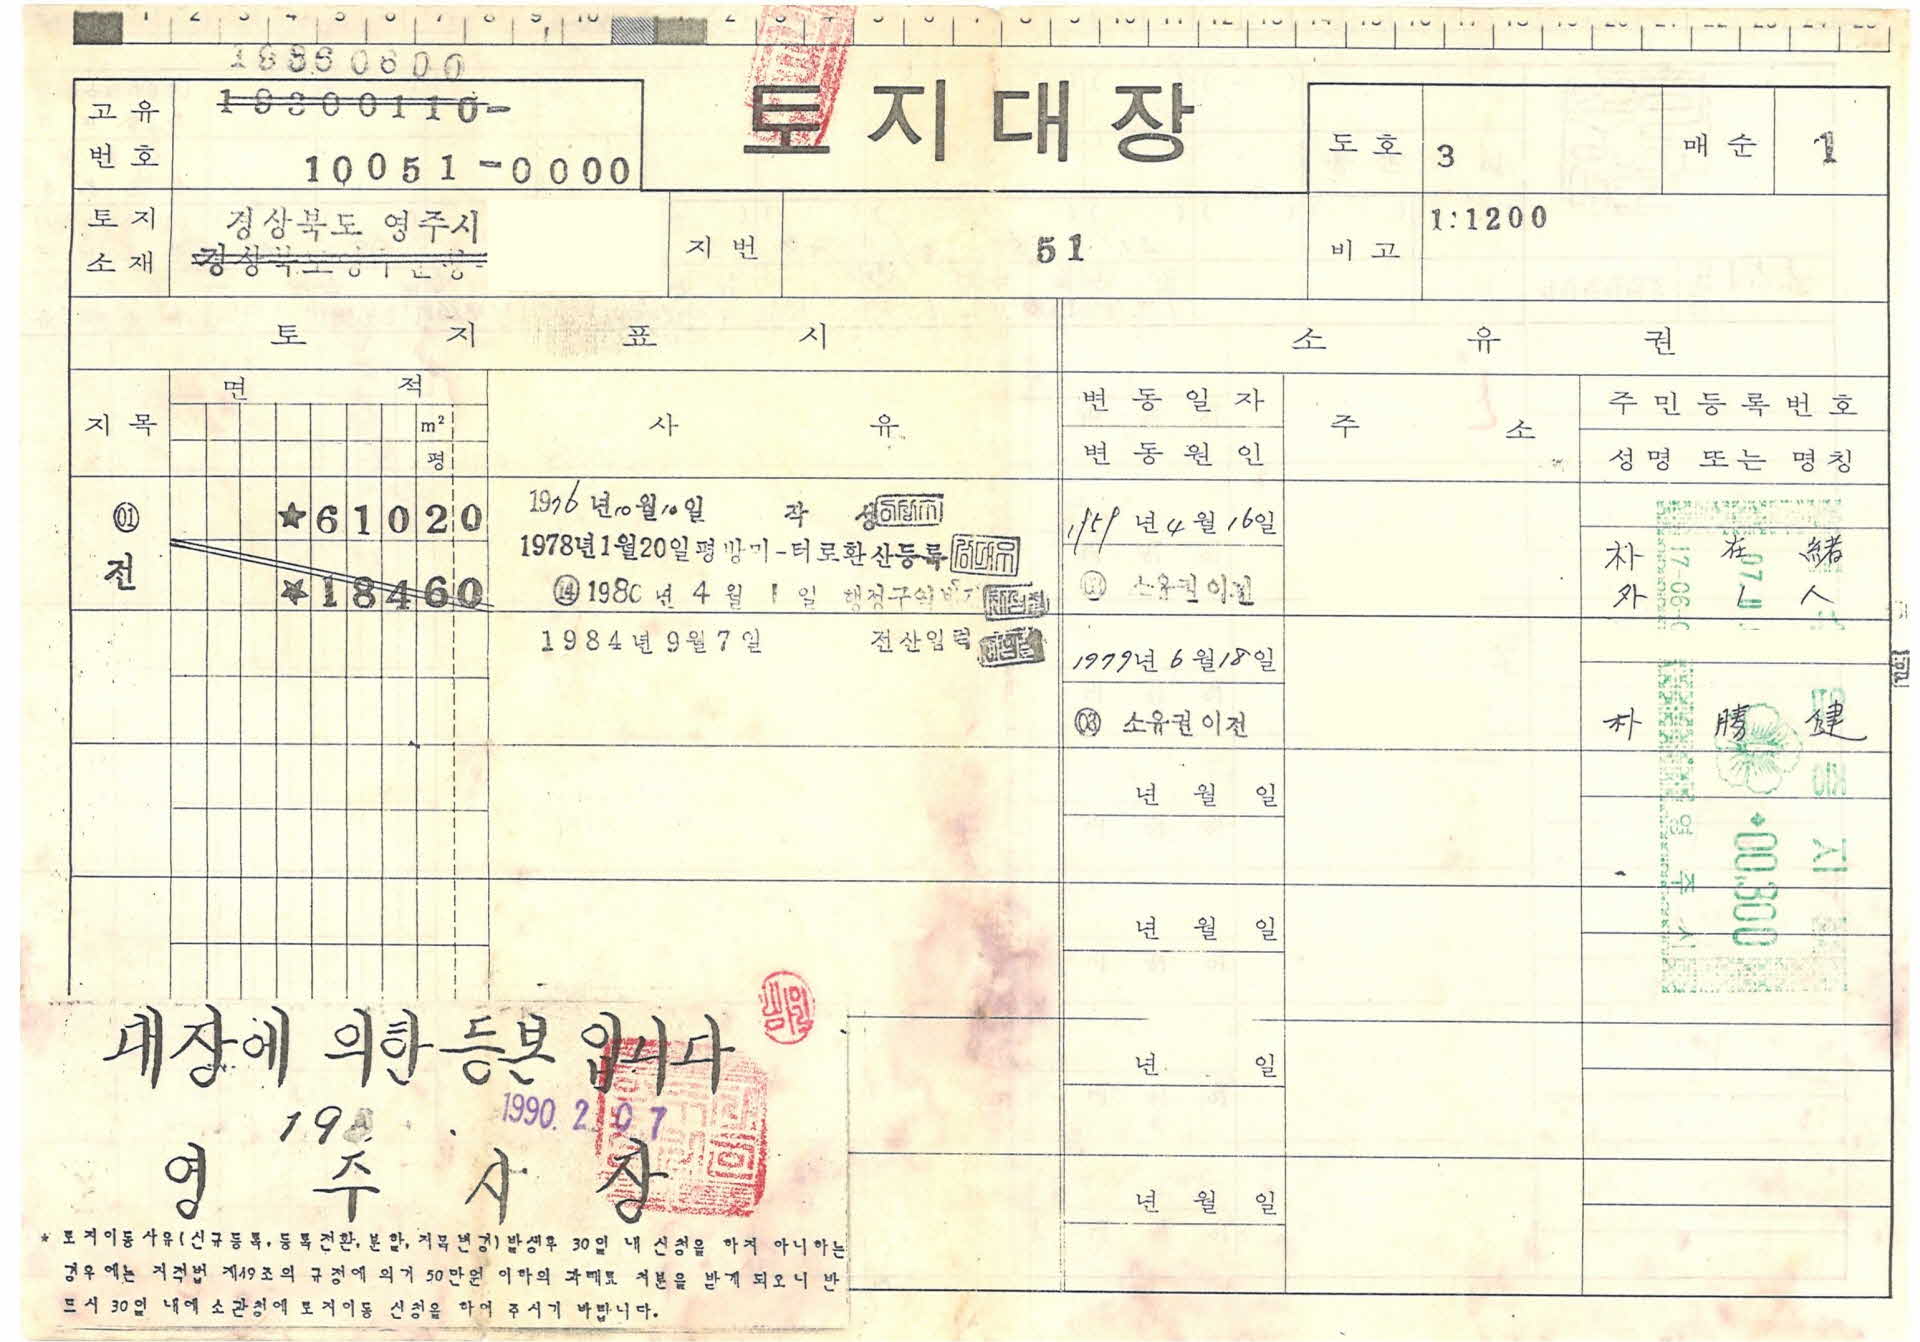 19860600
19300110-
고유
번호
10051-0000
토지대장
도호 3 매순 1
토지
소재
경상북도 영주시
지번 51
비고 1:1200
토지표시
소유권
지목
면적
m²
평
사유
변동일자
변동원인
주소
주민등록번호
성명 또는 명칭
01
전
★61020
★18460
1976년10월10일 작성
1978년1월20일평방미-터로환산등록
14 1980년 4월 1일 행정구역
1984년 9월 7일 전산입력
1959년 4월 16일
소유권이전
朴在緖
外 1人
1979년 6월 18일
03 소유권이전
朴勝健
년 월 일
년 월 일
년 일
년 월 일
00,300
영주시
대장에 의한 등본 입니다
19
1990. 2. 07
영주시장
* 토지이동사유(신규등록, 등록전환, 분할, 지목변경)발생후 30일 내 신청을 하지 아니하는
경우에는 지적법 제49조의 규정에 의거 50만원 이하의 과태료 처분을 받게 되오니 반
드시 30일 내에 소관청에 토지이동 신청을 하여 주시기 바랍니다.